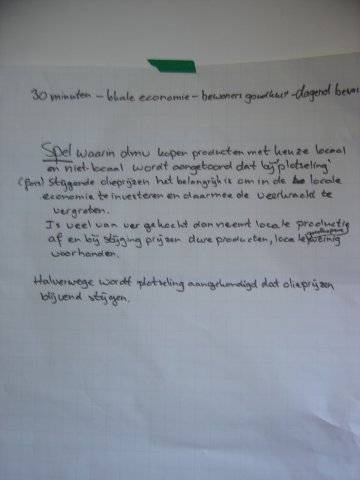 30 minuten - lokale economie - bewoners goudkust - dagend bewus
Spel waarin dmv kopen producten met keuze locaal
en niet-locaal wordt aangetoond dat bij plotseling
(fors) stijgende olieprijzen het belangrijk is om in de locale
economie te investeren en daarmee de veerkracht te
vergroten.
Is veel van ver gekocht dan neemt locale productie
af en bij stijging prijzen dure producten, locale weinig
voorhanden.
Halverwege wordt plotseling aangekondigd dat olieprijzen
blijvend stijgen.